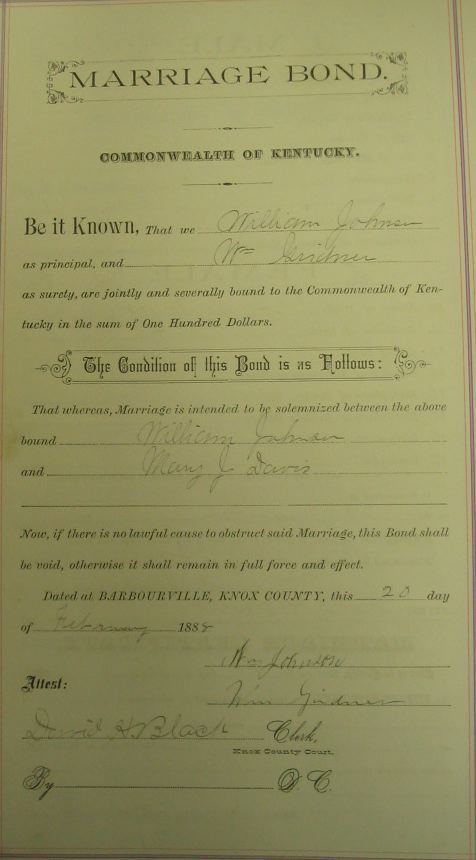 MARRIAGE BOND.
COMMONWEALTH OF KENTUCKY.
Be it Known, That we William Johnson
as principal, and Wm
as surety, are jointly and severally bound to the Commonwealth of Ken-
tucky in the sum of One Hundred Dollars.
The Condition of this Bond is as Follows:
That whereas, Marriage is intended to be solemnized between the above
bound William Johnson
and Mary J Davis
Now, if there is no lawful cause to obstruct said Marriage, this Bond shall
be void, otherwise it shall remain in full force and effect.
Dated at BARBOURVILLE, KNOX COUNTY, this 20 day
of February 1888
Wm Johnson
Attest:
Wm
David H. Black Clerk,
Knox County Court.
By D. C.